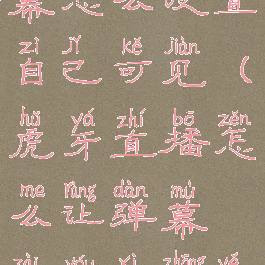 幕怎么设置
zì jǐ kě jiàn
自己可见（
hǔ yá zhí bō zěn
虎牙直播怎
me ràng dàn mù
么让弹幕